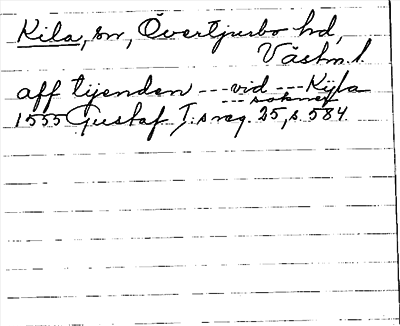 Kila, sn, Övertjurbo hd,
Västm. l.
aff tijenden --- vid --- Kijla
--- sokner
1555 Gustaf I:s reg. 25, s. 584